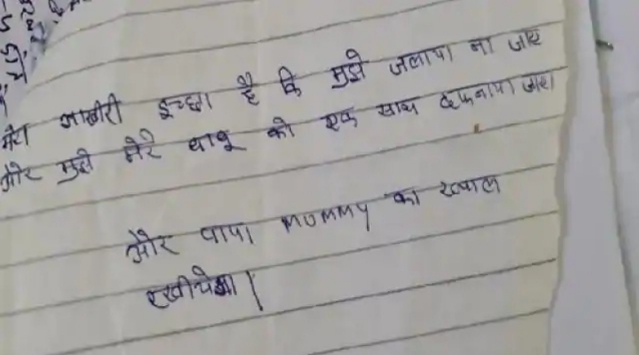 मेरा आखीरी इच्छा है कि मुझे जलाया ना जाए
और मुझे मेरे बाबू को एक साथ दफनाया जाए।
और पापा MUMMY का ख्याल
रखीयेगा।